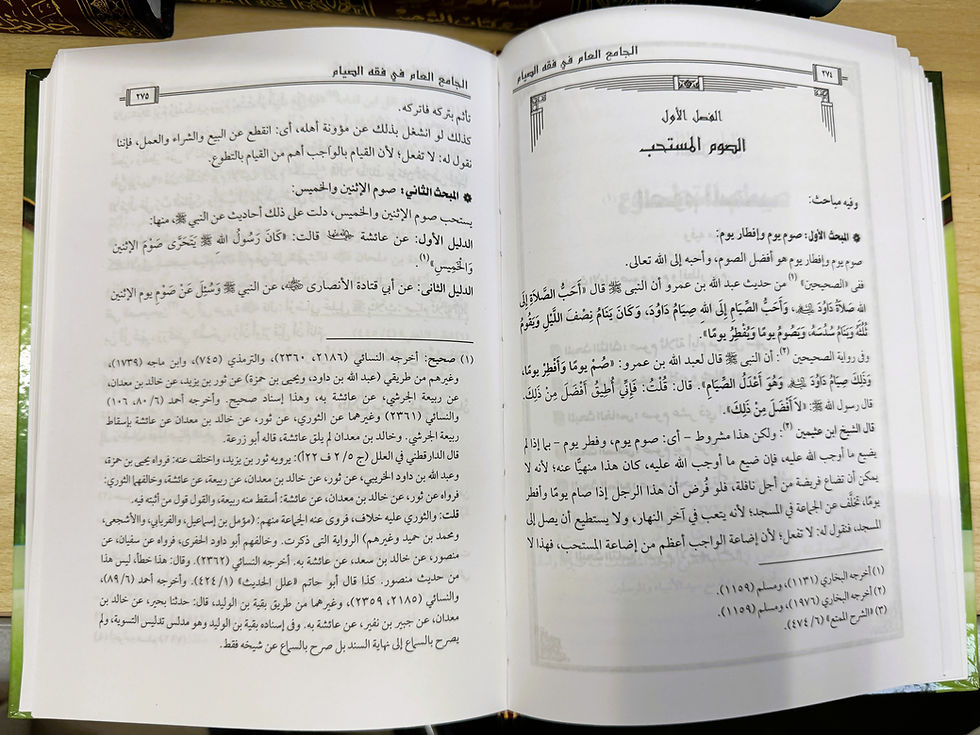 الجامع العام في فقه الصيام
٢٧٤
الفصل الأول
الصوم المستحب
وفيه مباحث:
المبحث الأول: صوم يوم وإفطار يوم:
صوم يوم وإفطار يوم هو أفضل الصوم، وأحبه إلى الله تعالى.
ففى «الصحيحين» (١) من حديث عبد الله بن عمرو أن النبى ﷺ قال «أَحَبُّ الصَّلَاةِ إِلَى
الله صَلَاةُ دَاوُدَ، وَأَحَبُّ الصِّيَامِ إِلَى الله صِيَامُ دَاوُدَ، وَكَانَ يَنَامُ نِصْفَ اللَّيْلِ وَيَقُومُ
ثُلُثَهُ وَيَنَامُ سُدُسَهُ، وَيَصُومُ يومًا وَيُفْطِرُ يومًا».
وفى رواية الصحيحين (٢): أن النبى ﷺ قال لعبد الله بن عمرو: «صُمْ يومًا وَأَفْطِرْ يومًا،
وَذَلِكَ صِيَامُ دَاوُدَ وَهُوَ أَعْدَلُ الصِّيَامِ». قال: قُلْتُ: فَإِنِّي أُطِيقُ أَفْضَلَ مِنْ ذَلِكَ.
قال رسول الله ﷺ: «لَا أَفْضَلَ مِنْ ذَلِكَ».
قال الشيخ ابن عثيمين (٣): ولكن هذا مشروط – أى: صوم يوم، وفطر يوم – بما إذا لم
يضيع ما أوجب الله عليه، فإن ضيع ما أوجب الله عليه، كان هذا منهيًّا عنه؛ لأنه لا
يمكن أن تضاع فريضة من أجل نافلة، فلو فُرض أن هذا الرجل إذا صام يومًا وأفطر
يومًا، تخلَّف عن الجماعة في المسجد؛ لأنه يتعب في آخر النهار، ولا يستطيع أن يصل إلى
المسجد، فنقول له: لا تفعل؛ لأن إضاعة الواجب أعظم من إضاعة المستحب، فهذا لا
(١) أخرجه البخاري (١١٣١)، ومسلم (١١٥٩).
(٢) أخرجه البخاري (١٩٧٦)، ومسلم (١١٥٩).
(٣) «الشرح الممتع» (٦/ ٤٧٤).
الجامع العام في فقه الصيام
٢٧٥
تأثم بتركه فاتركه.
كذلك لو انشغل بذلك عن مؤونة أهله، أى: انقطع عن البيع والشراء والعمل، فإننا
نقول له: لا تفعل؛ لأن القيام بالواجب أهم من القيام بالتطوع.
المبحث الثاني: صوم الإثنين والخميس:
يستحب صوم الإثنين والخميس، دلت على ذلك أحاديث عن النبي ﷺ، منها:
الدليل الأول: عن عائشة قالت: «كَانَ رَسُولُ الله ﷺ يَتَحَرَّى صَوْمَ الإثنين
وَالْخَمِيسِ» (١).
الدليل الثانى: عن أبي قتادة الأنصارى، عن النبي ﷺ وَسُئِلَ عَنْ صَوْمِ يوم الإثنين
(١) صحيح: أخرجه النسائي (٢١٨٦، ٢٣٦٠)، والترمذي (٧٤٥)، وابن ماجه (١٧٣٩)،
وغيرهم من طريقي (عبد الله بن داود، ويحيى بن حمزة) عن ثور بن يزيد، عن خالد بن معدان،
عن ربيعة الجرشي، عن عائشة به، وهذا إسناد صحيح. وأخرجه أحمد (٦/ ٨٠، ١٠٦)
والنسائي (٢٣٦١) وغيرهما عن الثوري، عن ثور، عن خالد بن معدان عن عائشة بإسقاط
ربيعة الجرشي. وخالد بن معدان لم يلق عائشة، قاله أبو زرعة.
قال الدارقطني في العلل (ج ٥/ ٢ ف ٢٢أ): يرويه ثور بن يزيد، واختلف عنه: فرواه يحيى بن حمزة،
وعبد الله بن داود الخريبي، عن ثور، عن خالد بن معدان، عن ربيعة، عن عائشة، وخالفهما الثوري:
فرواه عن ثور، عن خالد بن معدان، عن عائشة: أسقط منه ربيعة، والقول قول من أثبته فيه.
قلت: والثوري عليه خلاف، فروى عنه الجماعة منهم: (مؤمل بن إسماعيل، والفريابي، والأشجعى،
ومحمد بن حميد وغيرهم) الرواية التى ذكرت. وخالفهم أبو داود الحفرى، فرواه عن سفيان، عن
منصور، عن خالد بن سعد، عن عائشة به. أخرجه النسائي (٢٣٦٢). وقال: هذا خطأ، ليس هذا
من حديث منصور. كذا قال أبو حاتم «علل الحديث» (١/ ٤٢٤). وأخرجه أحمد (٦/ ٨٩)،
والنسائي (٢١٨٥، ٢٣٥٩)، وغيرهما من طريق بقية بن الوليد، قال: حدثنا بحير، عن خالد بن
معدان، عن جبير بن نفير، عن عائشة به. وفى إسناده بقية بن الوليد وهو مدلس تدليس التسوية، ولم
يصرح بالسماع إلى نهاية السند بل صرح بالسماع عن شيخه فقط.